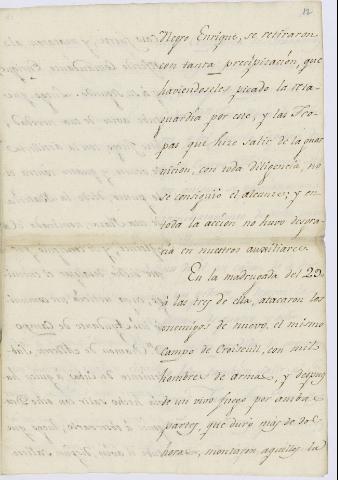 12
Negro Enrique, se retiraron
con tanta precipitación, que
haviendoseles picado la reta-
guardia por este, y las Tro-
pas que hize salir de la guar-
nicion, con toda diligencia, no
se consiguió el alcance; y en
toda la accion no huvo desgra-
cia en nuestros auxiliares.
En la madrugada del 23,
à las tres de ella, atacaron los
enemigos de nuevo, el mismo
Campo de Croiseuil, con mil
hombres de armas, y despues
de un vivo fuego por ambas
partes, que duró mas de dos
horas, montaron aquellos la